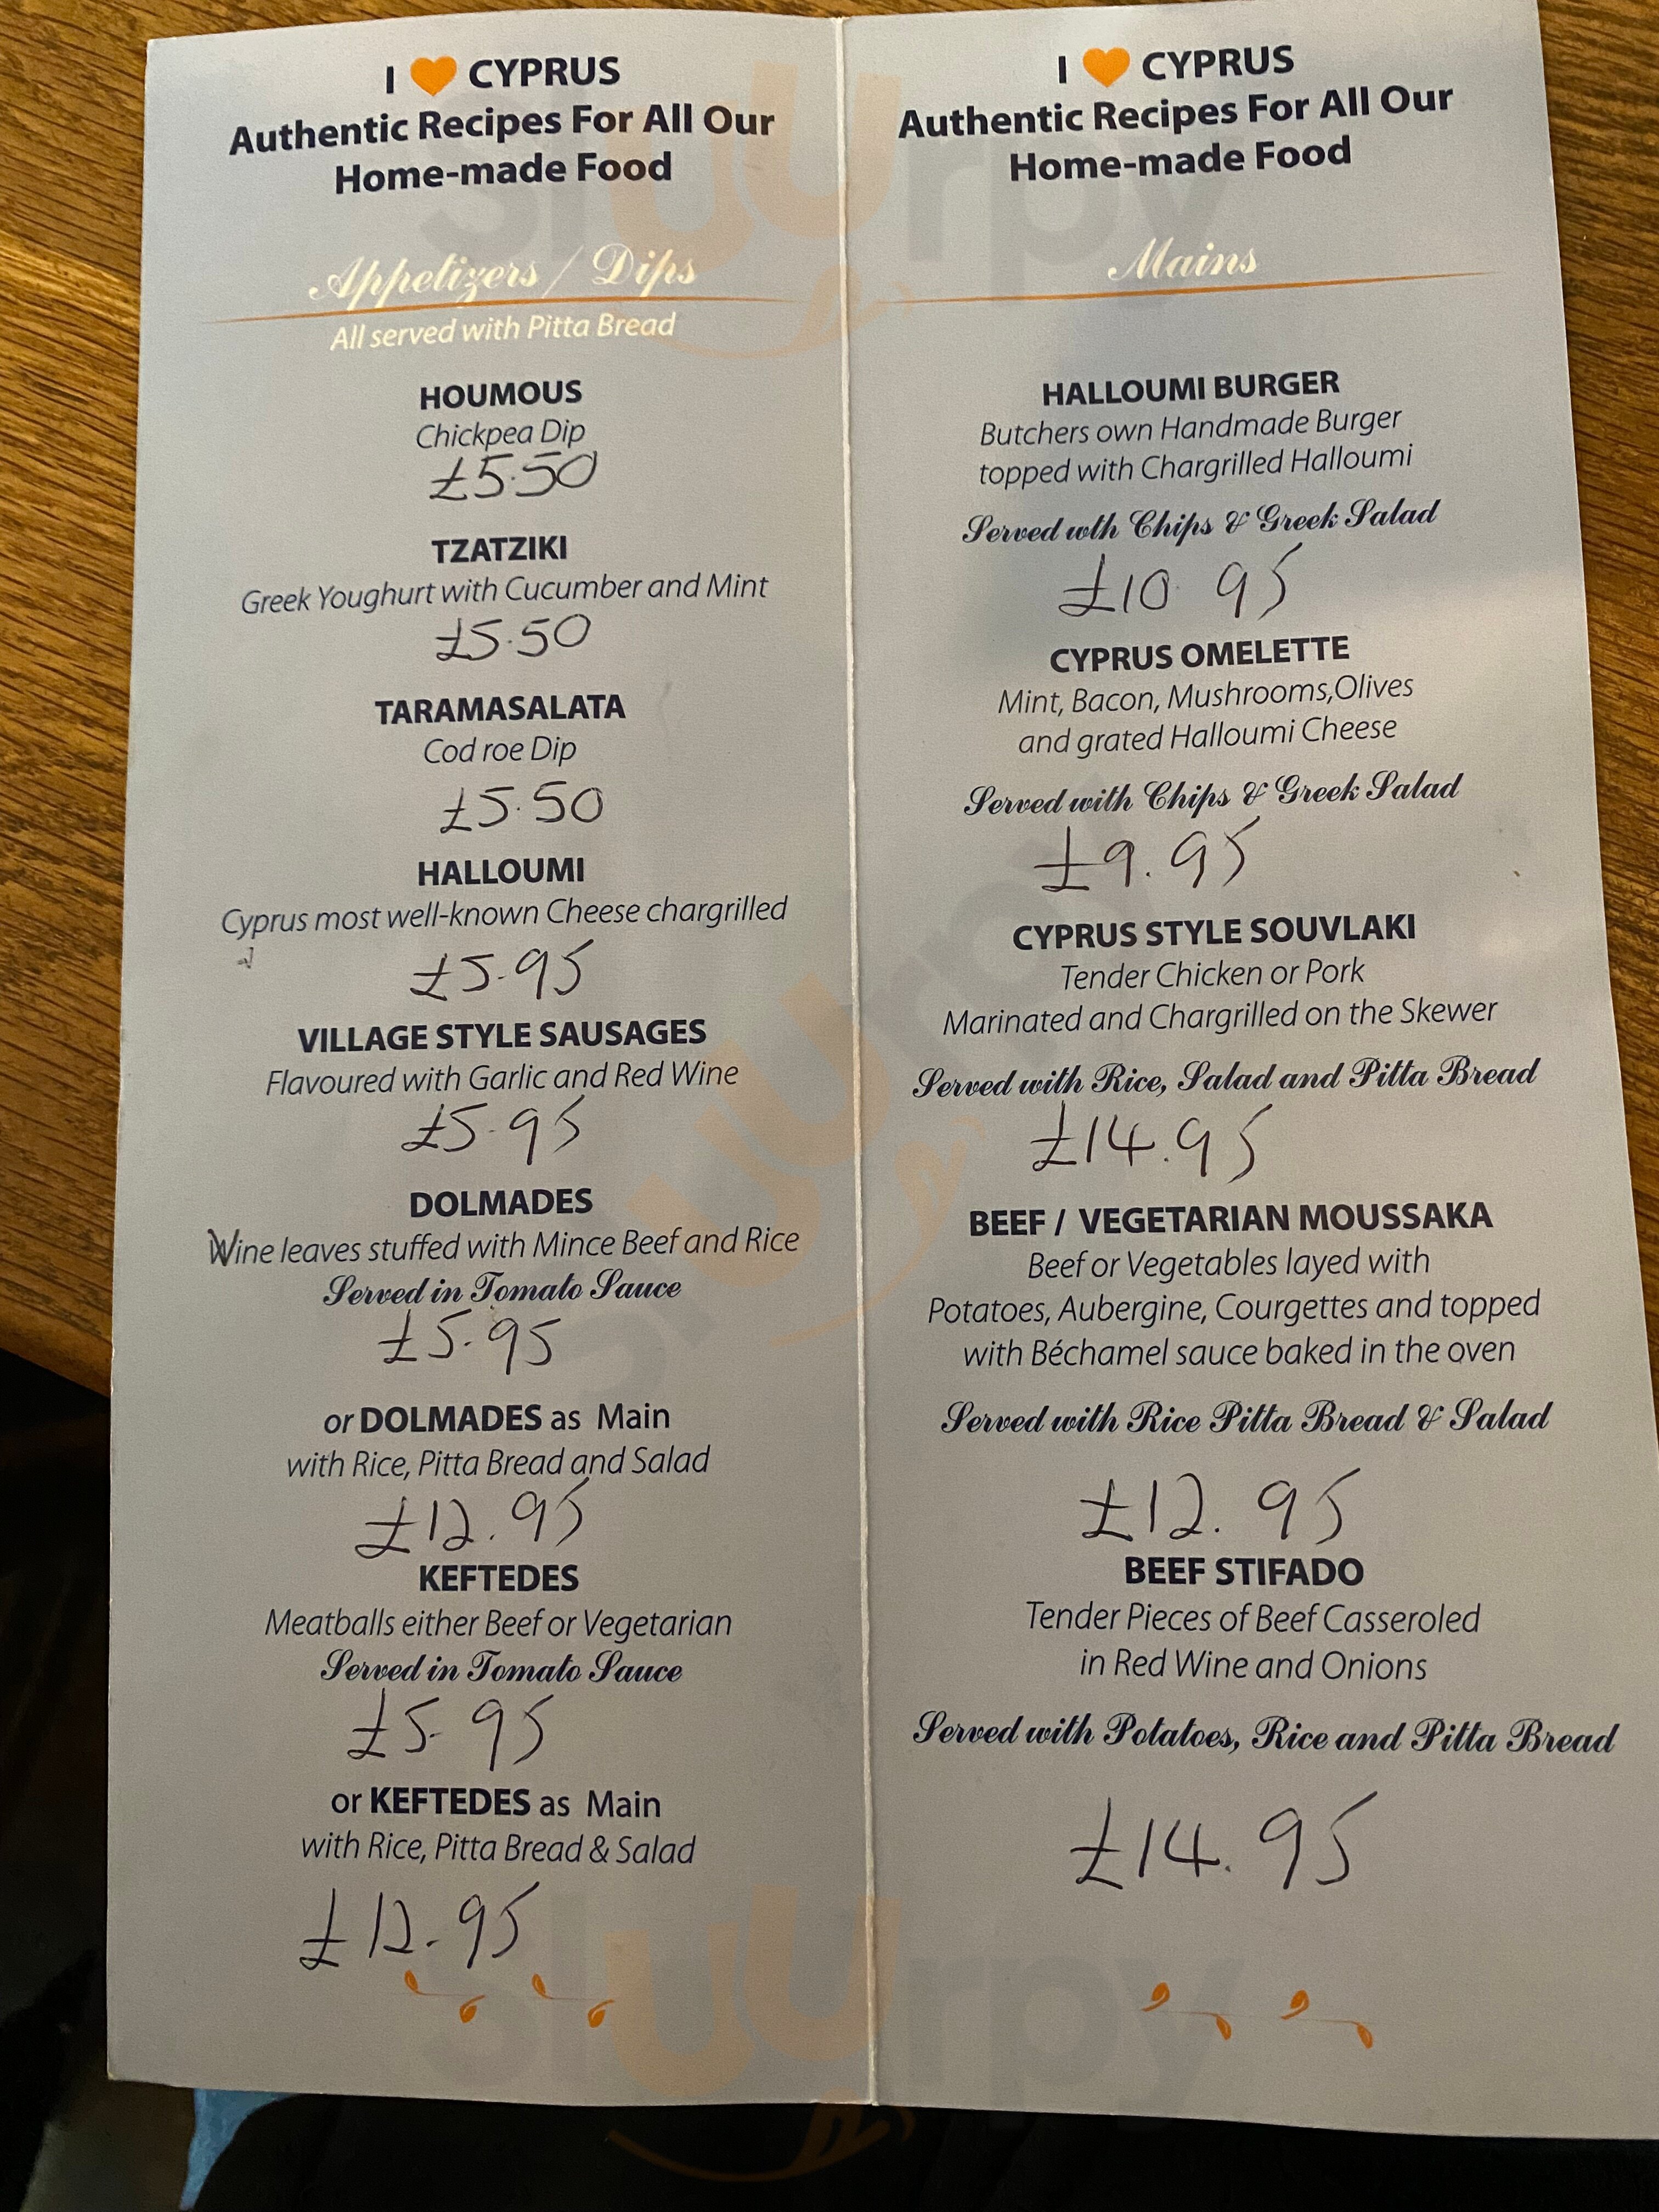 I CYPRUS
Authentic Recipes For All Our
Home-made Food
Appetizers / Dips
All served with Pitta Bread
HOUMOUS
Chickpea Dip
£5.50
TZATZIKI
Greek Youghurt with Cucumber and Mint
£5.50
TARAMASALATA
Cod roe Dip
£5.50
HALLOUMI
Cyprus most well-known Cheese chargrilled
£5.95
VILLAGE STYLE SAUSAGES
Flavoured with Garlic and Red Wine
£5.95
DOLMADES
Wine leaves stuffed with Mince Beef and Rice
Served in Tomato Sauce
£5.95
or DOLMADES as Main
with Rice, Pitta Bread and Salad
£12.95
KEFTEDES
Meatballs either Beef or Vegetarian
Served in Tomato Sauce
£5.95
or KEFTEDES as Main
with Rice, Pitta Bread & Salad
£12.95
I CYPRUS
Authentic Recipes For All Our
Home-made Food
Mains
HALLOUMI BURGER
Butchers own Handmade Burger
topped with Chargrilled Halloumi
Served wth Chips & Greek Salad
£10.95
CYPRUS OMELETTE
Mint, Bacon, Mushrooms,Olives
and grated Halloumi Cheese
Served with Chips & Greek Salad
£9.95
CYPRUS STYLE SOUVLAKI
Tender Chicken or Pork
Marinated and Chargrilled on the Skewer
Served with Rice, Salad and Pitta Bread
£14.95
BEEF / VEGETARIAN MOUSSAKA
Beef or Vegetables layed with
Potatoes, Aubergine, Courgettes and topped
with Béchamel sauce baked in the oven
Served with Rice Pitta Bread & Salad
£12.95
BEEF STIFADO
Tender Pieces of Beef Casseroled
in Red Wine and Onions
Served with Potatoes, Rice and Pitta Bread
£14.95
sluurpy
sluurpy
sluurpy